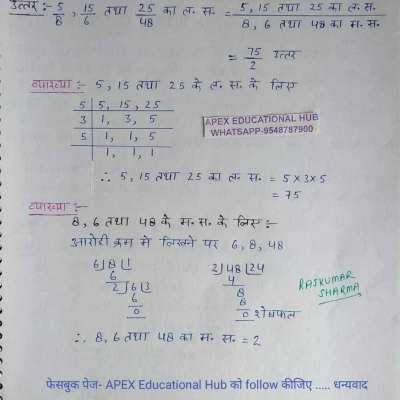 उत्तर :- 5/8 , 15/6 तथा 25/48 का ल. स. = 5, 15 तथा 25 का ल. स. / 8, 6 तथा 48 का म. स.
= 75/2 उत्तर
व्याख्या :- 5, 15 तथा 25 के ल. स. के लिए
5 | 5, 15, 25
3 | 1, 3, 5
5 | 1, 1, 5
1, 1, 1
APEX EDUCATIONAL HUB
WHATSAPP-9548787900
∴ 5, 15 तथा 25 का ल. स. = 5 × 3 × 5
= 75
व्याख्या :-
8, 6 तथा 48 के म. स. के लिए :-
आरोही क्रम में लिखने पर 6, 8, 48
6 ) 8 ( 1
6
2 ) 6 ( 3
6
0
2 ) 48 ( 24
4
8
8
0 शेषफल
RAJKUMAR
SHARMA
∴ 8, 6 तथा 48 का म. स. = 2
फेसबुक पेज- APEX Educational Hub को follow कीजिए ..... धन्यवाद